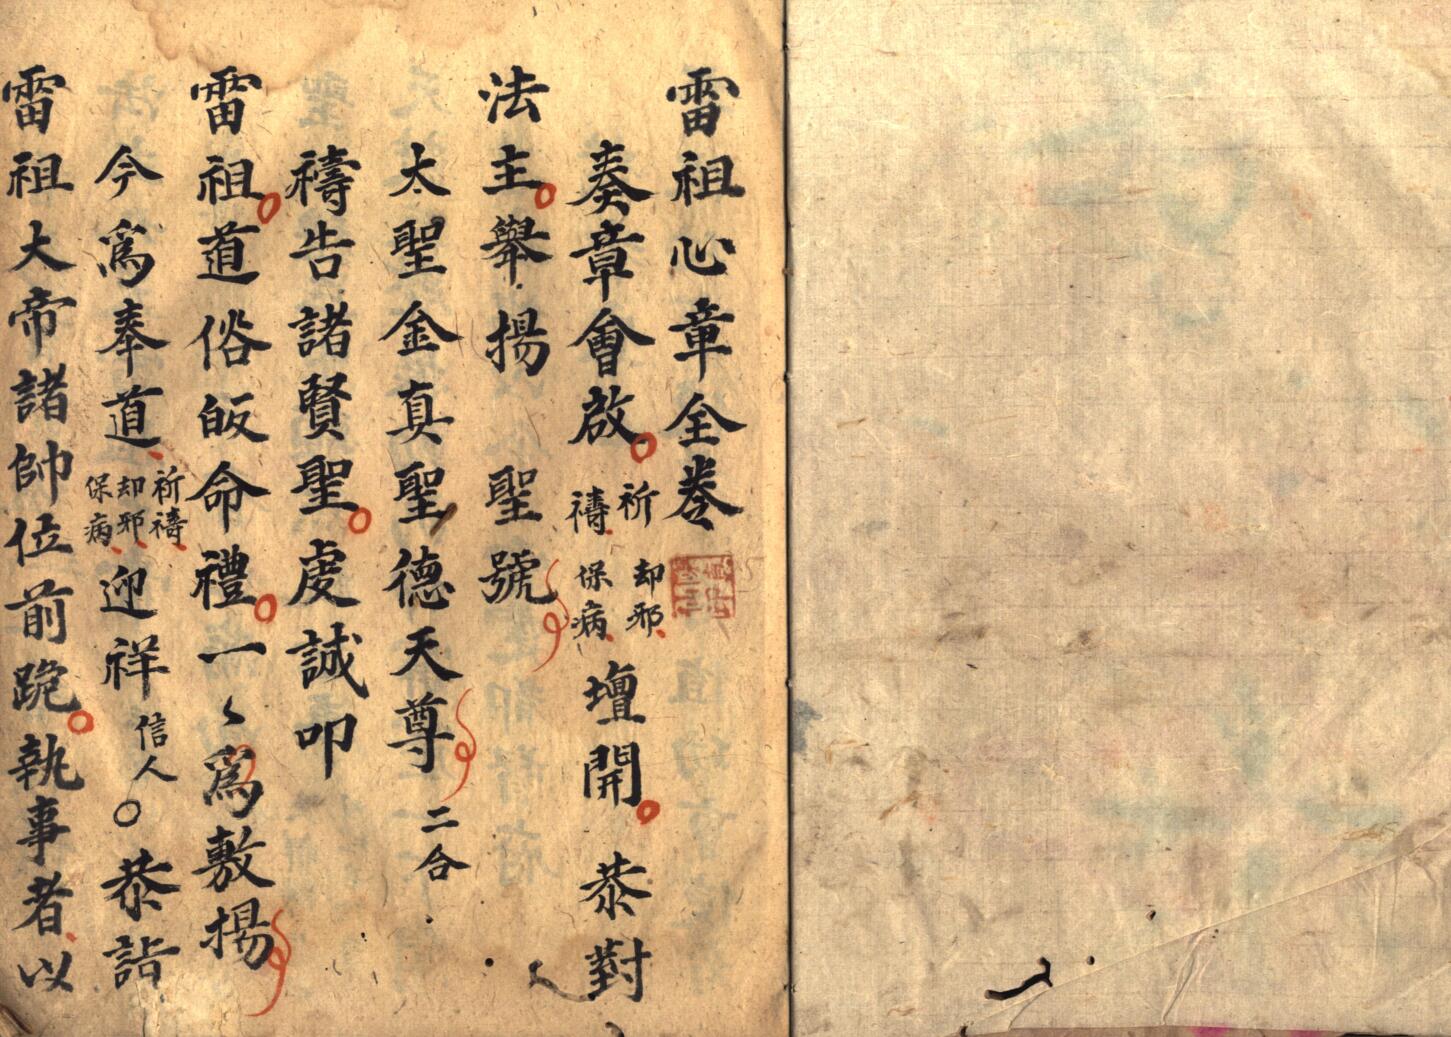 雷祖心章全卷
奏章會啟 祈禱 却邪 保病 壇開 恭對
法主舉揚 聖號
太聖金真聖德天尊 二合
禱告諸賢聖虔誠叩
雷祖道俗皈命禮一〻為敷揚
今為奉道 祈禱 却邪 保病 迎祥 信人〇恭詣
雷祖大帝諸帥位前跪執事者以